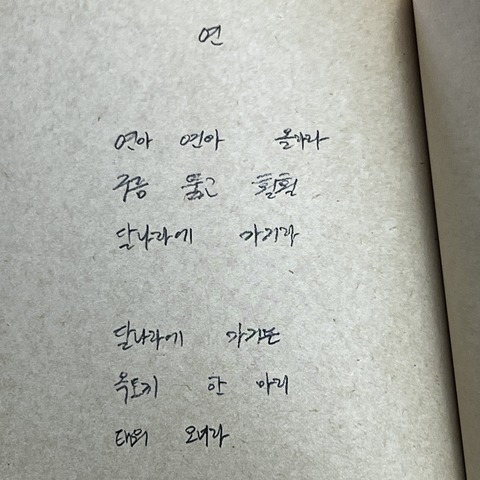 연
연아 연아
구름 뚫고 훨훨
달나라에 가거라
달나라에 가거든
옥토끼 한 마리
태워 오너라